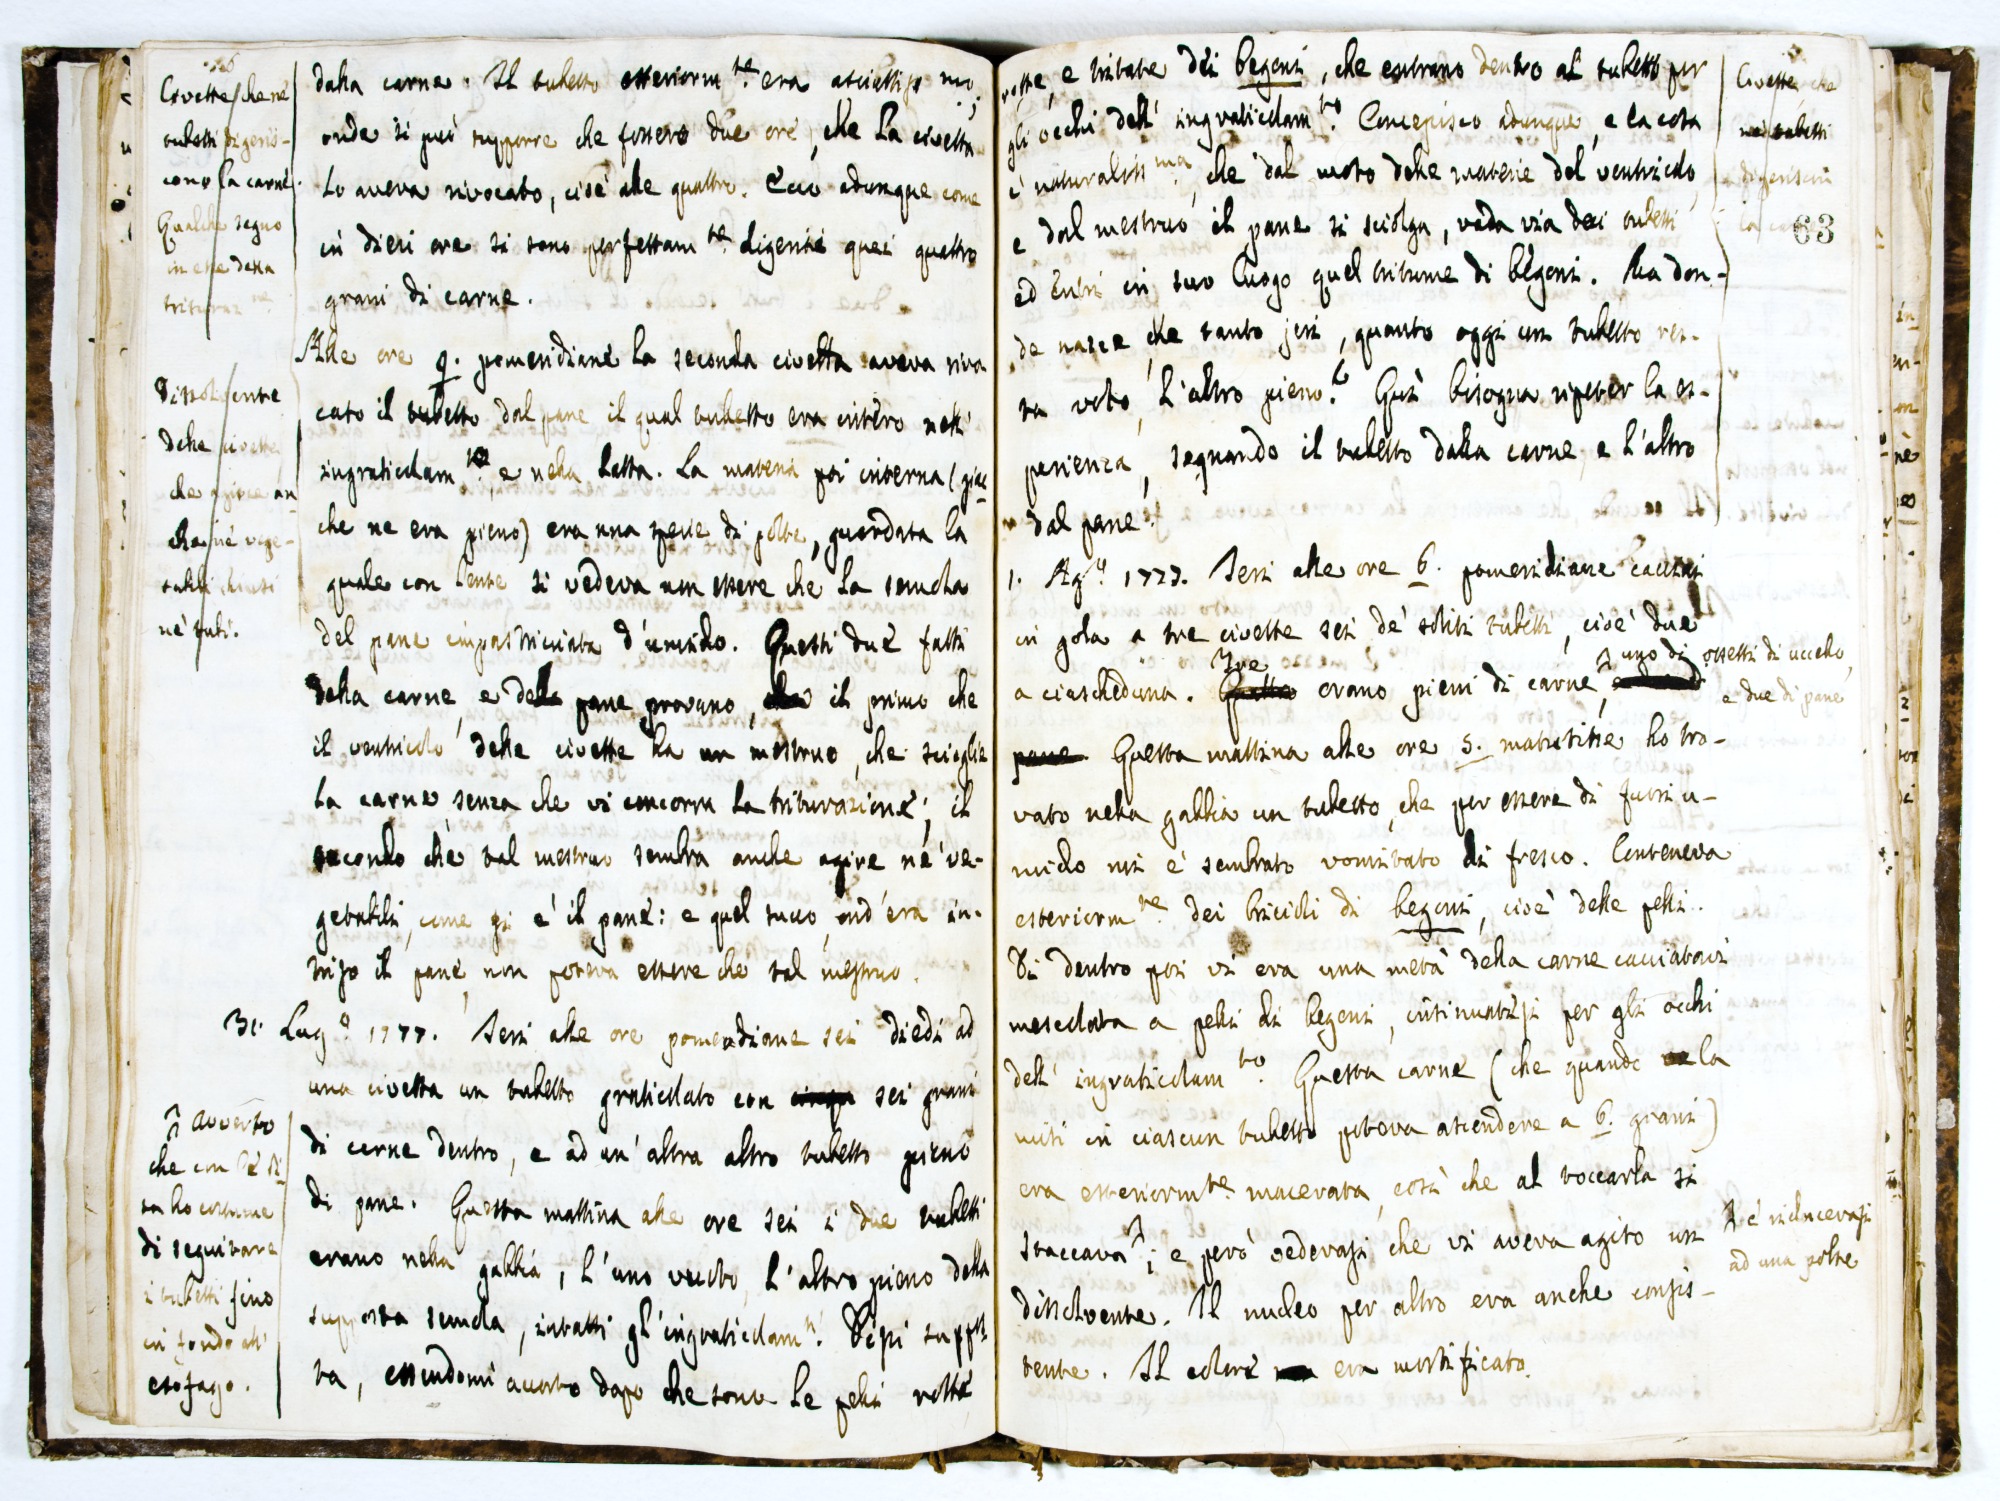 Civette che nè
tubetti digeris-
cono la carne.
Qualche segno
in esse della
trituraz.ne
dalla carne. Il tubetto esteriorm.te era asciuttiss.mo;
onde si può supporre che fossero due ore, che la civetta
lo aveva rivocato, cioè alle quattro. Ecco adunque come
in dieci ore si sono perfettam.te digeriti quei quattro
grani di carne.
Dissolvente
delle civette
che agisce an
che nè vege-
tabili chiusi
nè tubi.
Alle ore 9. pomeridiane la seconda civetta aveva rivo
cato il tubetto dal pane il qual tubetto era intero nell'
ingraticolam.to e nella latta. La materia poi interna (giac
che ne era pieno) era una specie di polte, guardata la
quale con lente si vedeva non essere che la semola
del pane impastricciata d'umido. Questi due fatti
della carne, e del pane provano, il primo che
il ventricolo delle civette ha un mestruo, che scioglie
la carne, senza che vi concorra la triturazione; il
secondo che tal mestruo sembra anche agire ne' ve-
getabili, come si è il pane: e quel succo, ond'era in-
triso il pane, non poteva essere che tal mestruo.
31. Lug.o 1777. Jeri alle ore pomeridiane sei diedi ad
una civetta un tubetto graticolato con cinque sei grani
di carne dentro, e ad un'altra altro tubetto pieno
di pane. Questa mattina alle ore sei i due tubetti
erano nella gabbia, l'uno vuoto, l'altro pieno della
supposta semola, intatti gl'ingraticolam.ti. Dissi suppos
ta, essendomi accorto dopo che sono le pelli rotte
Avverto
che con le di
ta ho costume
di seguitare
i tubetti fino
in fondo all'
esofago.
63
Civette, che
ne' tubetti
digeriscono
la carne
rotte, e tritate dei begoni, che entrano dentro al tubetto per
gli occhi dell'ingraticolam.to Concepisco adunque, e la cosa
è naturaliss.ma, che dal moto delle materie del ventricolo,
e dal mestruo il pane si sciolga, vada via dai tubetti
ed entri in suo luogo quel tritume di begoni. Ma don-
de nasce, che tanto jeri, quanto oggi un tubetto res-
ta voto, l'altro pieno? Qui bisogna ripeter la es-
perienza, segnando il tubetto dalla carne, e l'altro
dal pane.
1. Ag.to 1777. Jeri alle ore 6. pomeridiane cacciai
in gola a tre civette sei de' soliti tubetti, cioè due
a ciascheduna. Quattro Tre erano pieni di carne, uno di ossetti di uccello,
e due di pane
pane. Questa mattina alle ore 5. matutine ho tro-
vato nella gabbia un tubetto, che per essere di fuori u-
mido mi è sembrato vomitato di fresco. Conteneva
esteriorm.te dei bricioli di begoni, cioè delle pelli.
Di dentro poi vi era una metà della carne cacciatavi
mescolata a pelli di begoni, intinuatesi per gli occhi
dell'ingraticolam.to. Questa carne (che quando la
misi in ciascun tubetto poteva ascendere a 6. grani)
era esteriorm.te macerata, così che al toccarla si
staccava; e però vedevasi, che vi aveva agito un
è riducevasi
ad una polte
dissolvente. Il nucleo per altro era anche consis-
tente. Il colore era mortificato.